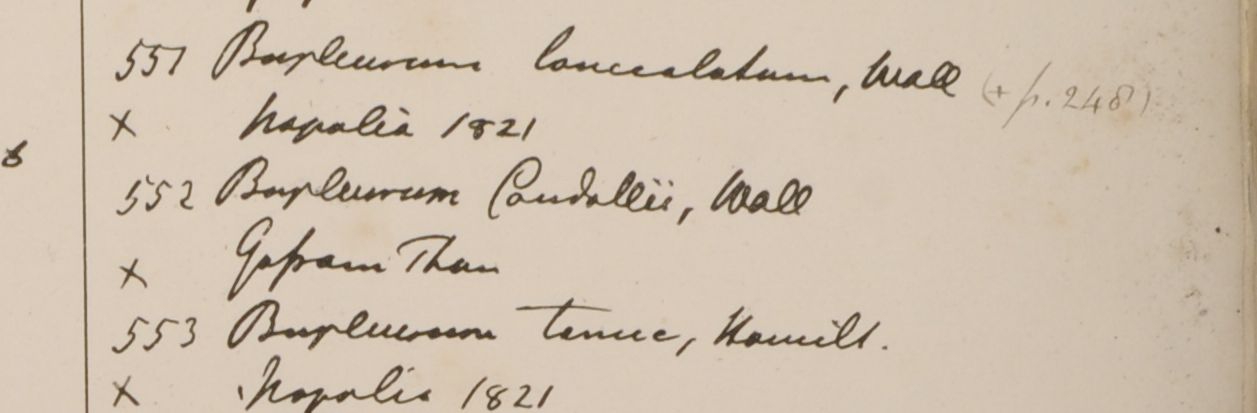 551 Bupleurum lanceolatum, Wall (+ p. 248)
x Napalia 1821
552 Bupleurum Candollii, Wall
x Gosam Than
553 Bupleurum tenue, Hamilt.
x Napalia 1821